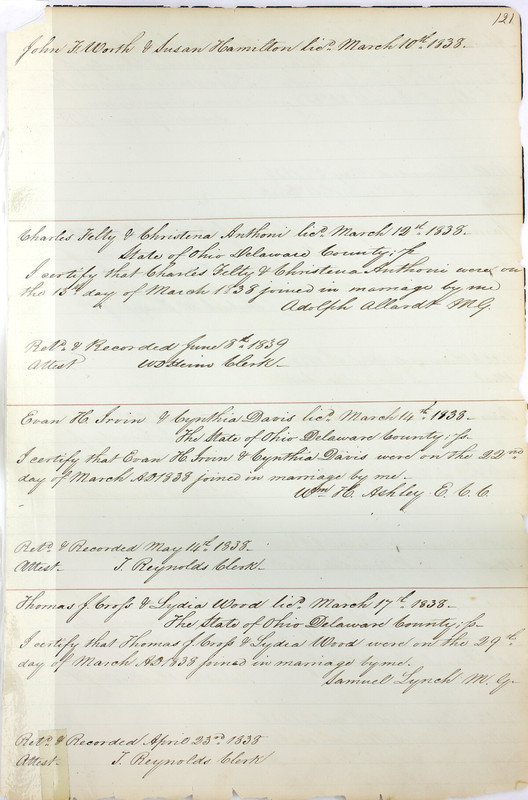 121
John F. Worth & Susan Hamilton licd. March 10th. 1838.
Charles Felty & Christena Anthoni licd. March 12th. 1838.
State of Ohio Delaware County; ss
I certify that Charles Felty & Christena Anthoni were on
the 15th day of March 1838 joined in marriage by me
Adolph Allardt M.G.
Retd. & Recorded June 8th. 1839
Attest Clerk
Evan H. Irvin & Cynthia Davis licd. March 14th. 1838.
The State of Ohio Delaware County; ss.
I certify that Evan H. Irvin & Cynthia Davis were on the 22nd
day of March AD 1838 joined in marriage by me
Wm H. Ashley E. C. C.
Retd. & Recorded May 14th. 1838.
Attest. T. Reynolds Clerk
Thomas J. Cross & Lydia Wood licd. March 17th. 1838.
The State of Ohio Delaware County; ss
I certify that Thomas J. Cross & Lydia Wood were on the 29th
day of March AD 1838 joined in marriage by me.
Samuel Lynch M. G.
Retd. & Recorded April 23nd 1838
Attest. T. Reynolds Clerk